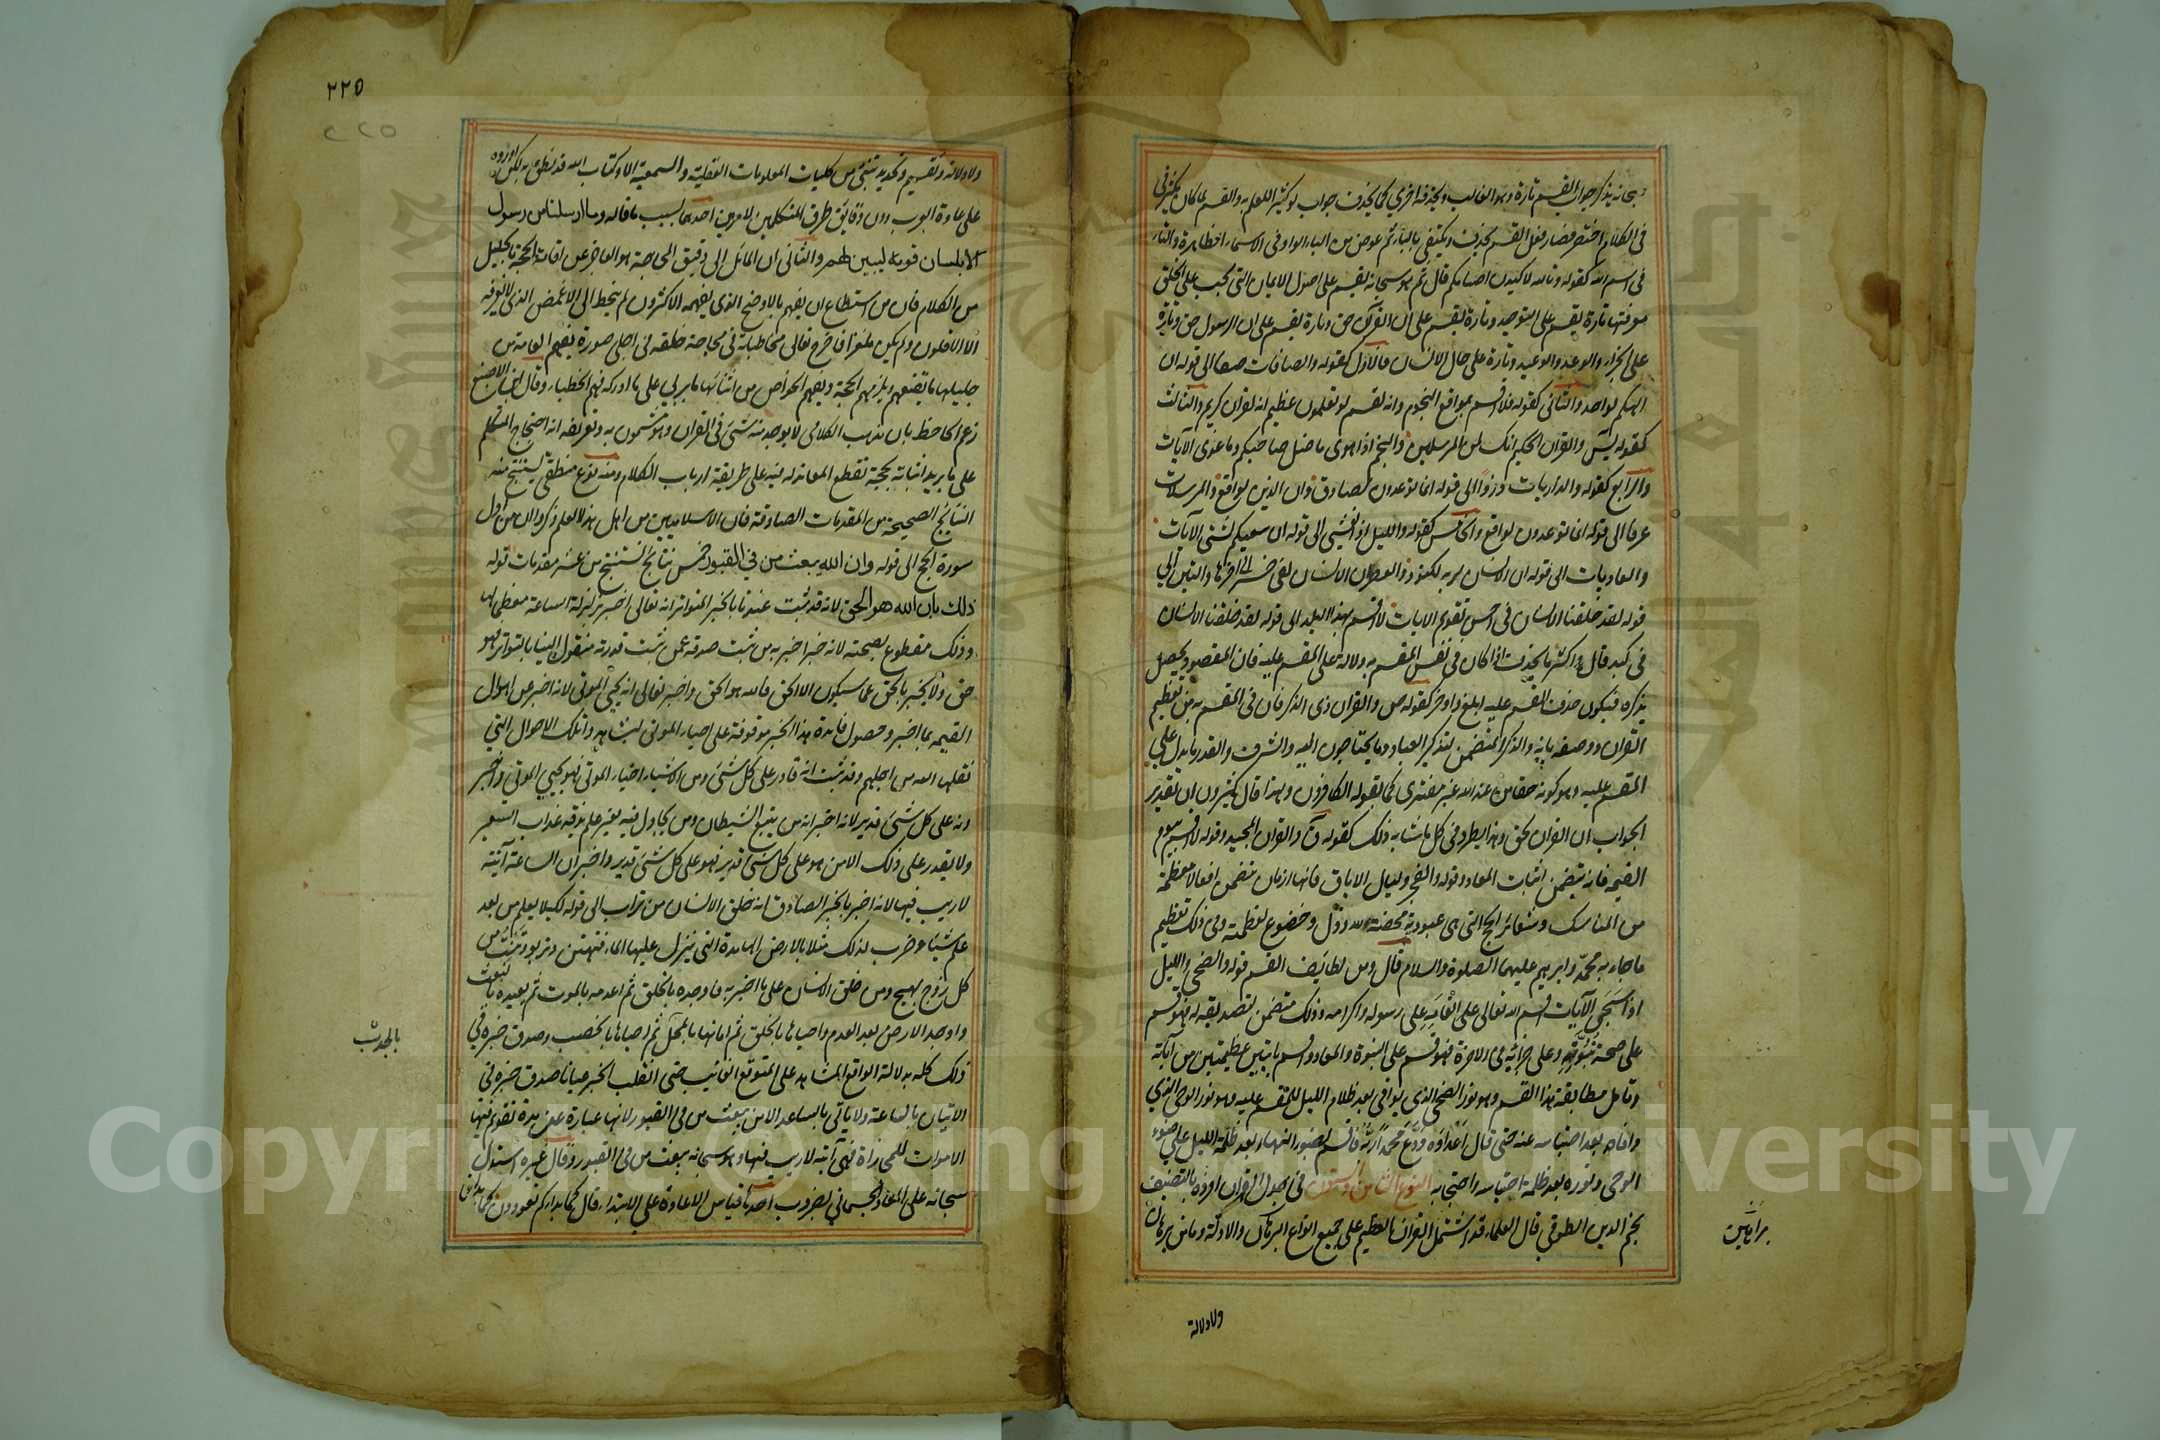 سبحانه يذكر جواب القسم تارة وهو الغالب ويحذفه اخرى كما يحذف جواب لو كثيرا للعلم به والقسم لما كان يكثر في
في الكلام اختصر فصار فعل القسم يحذف ويكتفى بالباء ثم عوض من الباء الواو في الاسماء الظاهرة والتاء
في اسم الله كقوله وتالله لاكيدن اصنامكم قال ثم هو سبحانه يقسم على اصول الايمان التي يجب على الخلق
معرفتها تارة يقسم على التوحيد وتارة يقسم على ان القرآن حق وتارة يقسم على ان الرسول حق وتارة
على الجزاء والوعد والوعيد وتارة على حال الانسان فالاول كقوله والصافات صفا الى قوله ان
الهكم لواحد والثاني كقوله فلا اقسم بمواقع النجوم وانه لقسم لو تعلمون عظيم انه لقران كريم والثالث
كقوله يس والقران الحكيم انك لمن المرسلين والنجم اذا هوى ما ضل صاحبكم وما غوى الآيات
والرابع كقوله والذاريات ذروا الى قوله انما توعدون لصادق وان الدين لواقع والمرسلات
عرفا الى قوله انما توعدون لواقع والخامس كقوله والليل اذا يغشى الى قوله ان سعيكم لشتى الآيات
والعاديات الى قوله ان الانسان لربه لكنود والعصر ان الانسان لفي خسر الى اخرها والتين الى
قوله لقد خلقنا الانسان في احسن تقويم الايات لا اقسم بهذا البلد الى قوله لقد خلقنا الانسان
في كبد قال واكثر ما يحذف اذا كان في نفس المقسم به دلالة على المقسم عليه فان المقصود يحصل
بذكره فيكون حذف المقسم عليه ابلغ واوجز كقوله ص والقران ذي الذكر فان في المقسم به من تعظيم
القران ووصفه بانه ذو الذكر المتضمن لتذكير العباد وما يحتاجون اليه والشرف والقدر ما يدل على
المقسم عليه وهو كونه حقا من عند الله غير مفترى كما يقوله الكافرون وبهذا قال كثيرون ان تقدير
الجواب ان القران لحق وهذا يطرد في كل ما شابه ذلك كقوله ق والقران المجيد وقوله لا اقسم بيوم
القيمة فانه يتضمن اثبات المعاد وقوله والفجر وليال الاية فانها ازمان تتضمن افعالا معظمة
من المناسك وشعائر الحج التي هي عبودية محضة لله وذل وخضوع لعظمته وفي ذلك تعظيم
ما جاء به محمد وابرهيم عليهما الصلوة والسلام قال ومن لطائف القسم قوله والضحى والليل
اذا سجى الآيات اقسم الله تعالى على انعامه على رسوله واكرامه وذلك متضمن لتصديقه له فهو قسم
على صحة نبوته وعلى جزائه في الاخرة فهو قسم على النبوة والمعاد واقسم بايتين عظيمتين من آياته
وتامل مطابقة هذا القسم وهو نور الضحى الذي يوافي بعد ظلام الليل للمقسم عليه وهو نور الوحي الذي
وافاه بعد احتباسه عنه حتى قال اعداؤه ودع محمدا ربه فاقسم بضوء النهار بعد ظلمة الليل على ضوء
الوحي ونوره بعد ظلمة احتباسه واحتجابه النوع الثامن والستون في جدل القران افرده بالتصنيف
نجم الدين الطوفي قال العلماء قد اشتمل القران العظيم على جميع انواع البراهين والادلة وما من برهان
براهين
ولا دلالة
٢٢٥
٢٢٥
ولا دلالة وتقسيم وتحديد تنبئ من كليات المعلومات العقلية والسمعية الا وكتاب الله قد نطق به لكن اورده
على عادة العرب دون دقايق طرق المتكلمين لامرين احدهما بسبب ما قاله وما ارسلنا من رسول
الا بلسان قومه ليبين لهم والثاني ان المائل الى دقيق المحاجة هو العاجز عن اقامة الحجة بالجليل
من الكلام فان من استطاع ان يفهم بالاوضح الذي يفهمه الاكثرون لم ينحط الى الاغمض الذي لا يعرفه
الا الاقلون ولم يكن ملغزا فاخرج تعالى مخاطباته في محاجة خلقه في اجلى صورة ليفهم العامة من
جليلها ما يقنعهم ويلزمهم الحجة ويفهم الخواص من اثنائها ما يربي على ما ادركه فهم الخطباء وقال ابن ابي الاصبع
زعم الجاحظ بان مذهب الكلامي لا يوجد منه شئ في القران وهو مشحون به وتعريفه انه احتجاج المتكلم
على ما يريد اثباته بحجة تقطع المعاند له فيه على طريقة ارباب الكلام ومنه نوع منطقي يستنتج منه
النتائج الصحيحة من المقدمات الصادقة فان الاسلاميين من اهل هذا العلم ذكروا ان من اول
سورة الحج الى قوله وان الله يبعث من في القبور خمس نتائج تستنتج من عشر مقدمات قوله
ذلك بان الله هو الحق لانه قد ثبت عندنا بالخبر المتواتر انه تعالى اخبر بزلزلة الساعة معظما لها
وذلك مقطوع بصحته لانه خبر اخبر به من ثبت صدقه عمن ثبت قدرته منقول الينا بالتواتر فهو
حق ولا يخبر بالحق عما سيكون الا الحق فالله هو الحق واخبر تعالى انه يحيي الموتى لانه اخبر عن اهوال
القيمة بما اخبر وحصول فائدة هذا الخبر موقوفة على احياء الموتى ليشاهدوا تلك الاهوال التي
نقلها الله من اجلهم وقد ثبت انه قادر على كل شئ ومن الاشياء احياء الموتى فهو يحيي الموتى واخبر
انه على كل شئ قدير لانه اخبر انه من يتبع الشيطان ومن يجادل فيه بغير علم يذقه عذاب السعير
ولا يقدر على ذلك الا من هو على كل شئ قدير فهو على كل شئ قدير واخبر ان الساعة آتية
لا ريب فيها لانه اخبر بالخبر الصادق انه خلق الانسان من تراب الى قوله لكيلا يعلم من بعد
علم شيئا وضرب لذلك مثلا بالارض الهامدة التي ينزل عليها الماء فتهتز وتربو وتنبت من
كل زوج بهيج ومن خلق الانسان على ما اخبر به فاوجده بالخلق ثم اعدمه بالموت ثم يعيده بالبعث
واوجد الارض بعد العدم واحياها بالخلق ثم اماتها بالمحل ثم احياها بالخصب وصدق خبره في
ذلك كله بدلالة الواقع المشاهد على المتوقع الغائب حتى انقلب الخبر عيانا صدق خبره في
الاتيان بالساعة ولا ياتي بالساعة الا من يبعث من في القبور لانها عبارة عن مدة تقوم فيها
الاموات للمجازاة فهي آتية لا ريب فيها وهو سبحانه يبعث من في القبور وقال غيره استدل
سبحانه على المعاد الجسماني بضروب احدها قياس الاعادة على الابتداء قال كما بداكم تعودون كما بدانا
بالجدب
Copyright © King Saud University